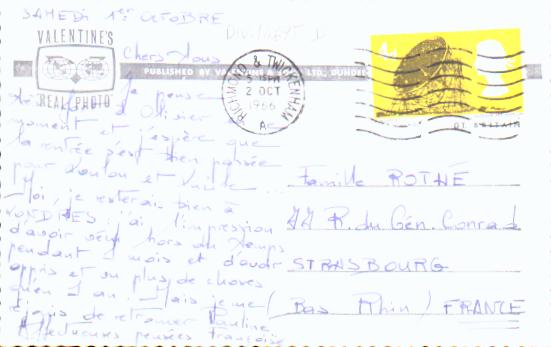 SAMEDI 1er OCTOBRE
VALENTINE'S
REAL PHOTO
Chers Vous
PUBLISHED BY VALENTINE & LTD., DUNDEE
RICHMOND & TWICKENHAM
2 OCT
1966
A
Je pense
Olivier
moment et j'espère que
la rentrée s'est bien passée
pour Loulou et
Moi, je resterais bien à
LONDRES j'ai l'impression
d'avoir vécu hors du temps
pendant 1 mois et d'avoir
appris et vu plus de choses
qu'en 1 an. Mais je me
réjouis de retrouver Pauline
Affectueuses pensées Françoise
Famille ROTHÉ
R. du Gén. Conrad
STRASBOURG
(Bas Rhin) FRANCE